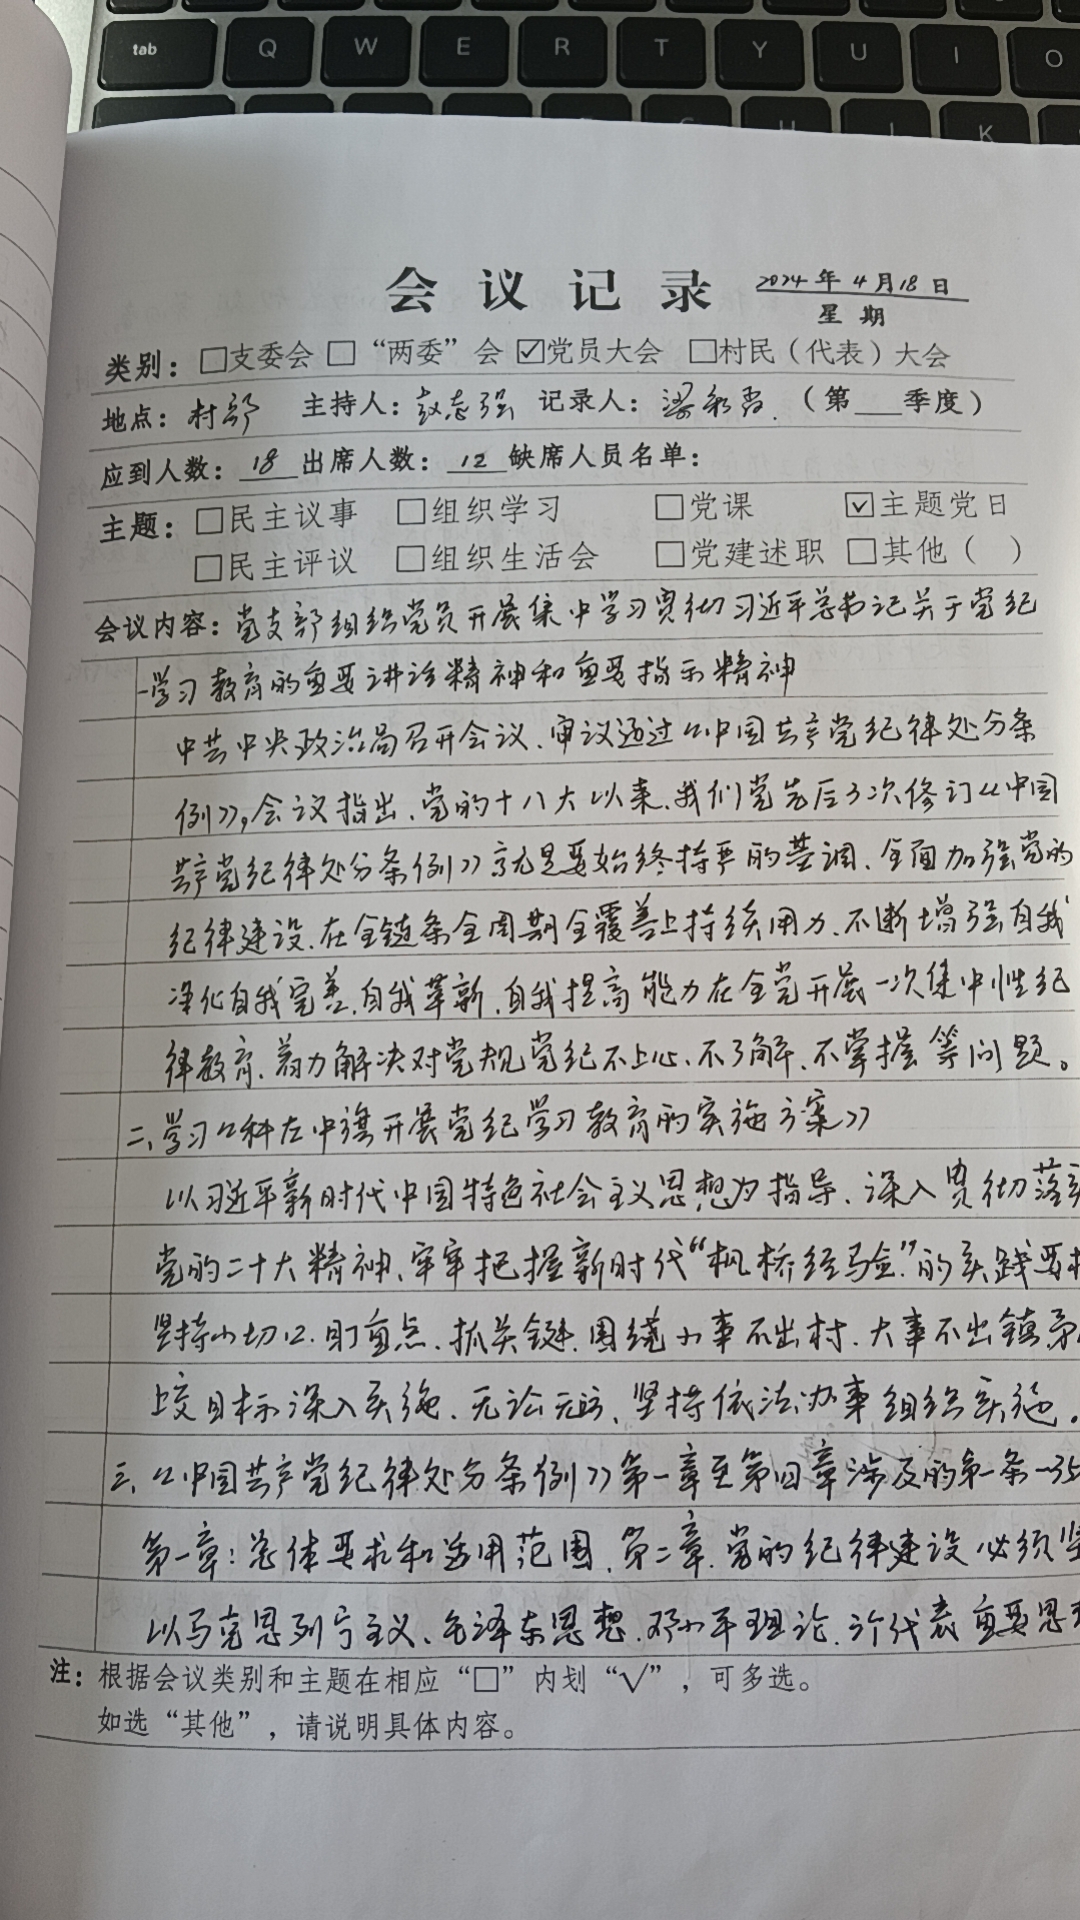 tab Q W E R T Y U I O
K
会议记录 2024年4月18日
星期
类别：□支委会 □“两委”会 ☑党员大会 □村民（代表）大会
地点：村部 主持人：赵志强 记录人：梁 （第 季度）
应到人数：18 出席人数：12 缺席人员名单：
主题：□民主议事 □组织学习 □党课 ☑主题党日
□民主评议 □组织生活会 □党建述职 □其他（ ）
会议内容：党支部组织党员开展集中学习贯彻习近平总书记关于党纪
一学习教育的重要讲话精神和重要指示精神
中共中央政治局召开会议、审议通过《中国共产党纪律处分条
例》，会议指出、党的十八大以来、我们党先后3次修订《中国
共产党纪律处分条例》就是要始终持严的基调、全面加强党的
纪律建设、在全链条全周期全覆盖上持续用力、不断增强自我
净化自我完善、自我革新、自我提高能力在全党开展一次集中性纪
律教育、着力解决对党规党纪不上心、不了解、不掌握等问题。
二、学习《科左中旗开展党纪学习教育的实施方案》
以习近平新时代中国特色社会主义思想为指导、深入贯彻落实
党的二十大精神、牢牢把握新时代“枫桥经验”的实践要
坚持小切口、盯重点、抓关键、围绕小事不出村、大事不出镇、矛
上交目标深入实施、无讼无访、坚持依法办事组织实施。
三、《中国共产党纪律处分条例》第一章至第四章涉及的第一条一35
第一章：总体要求和适用范围、第二章、党的纪律建设必须坚
以马克思列宁主义、毛泽东思想、邓小平理论、个代表重要思
注：根据会议类别和主题在相应“□”内划“√”，可多选。
如选“其他”，请说明具体内容。